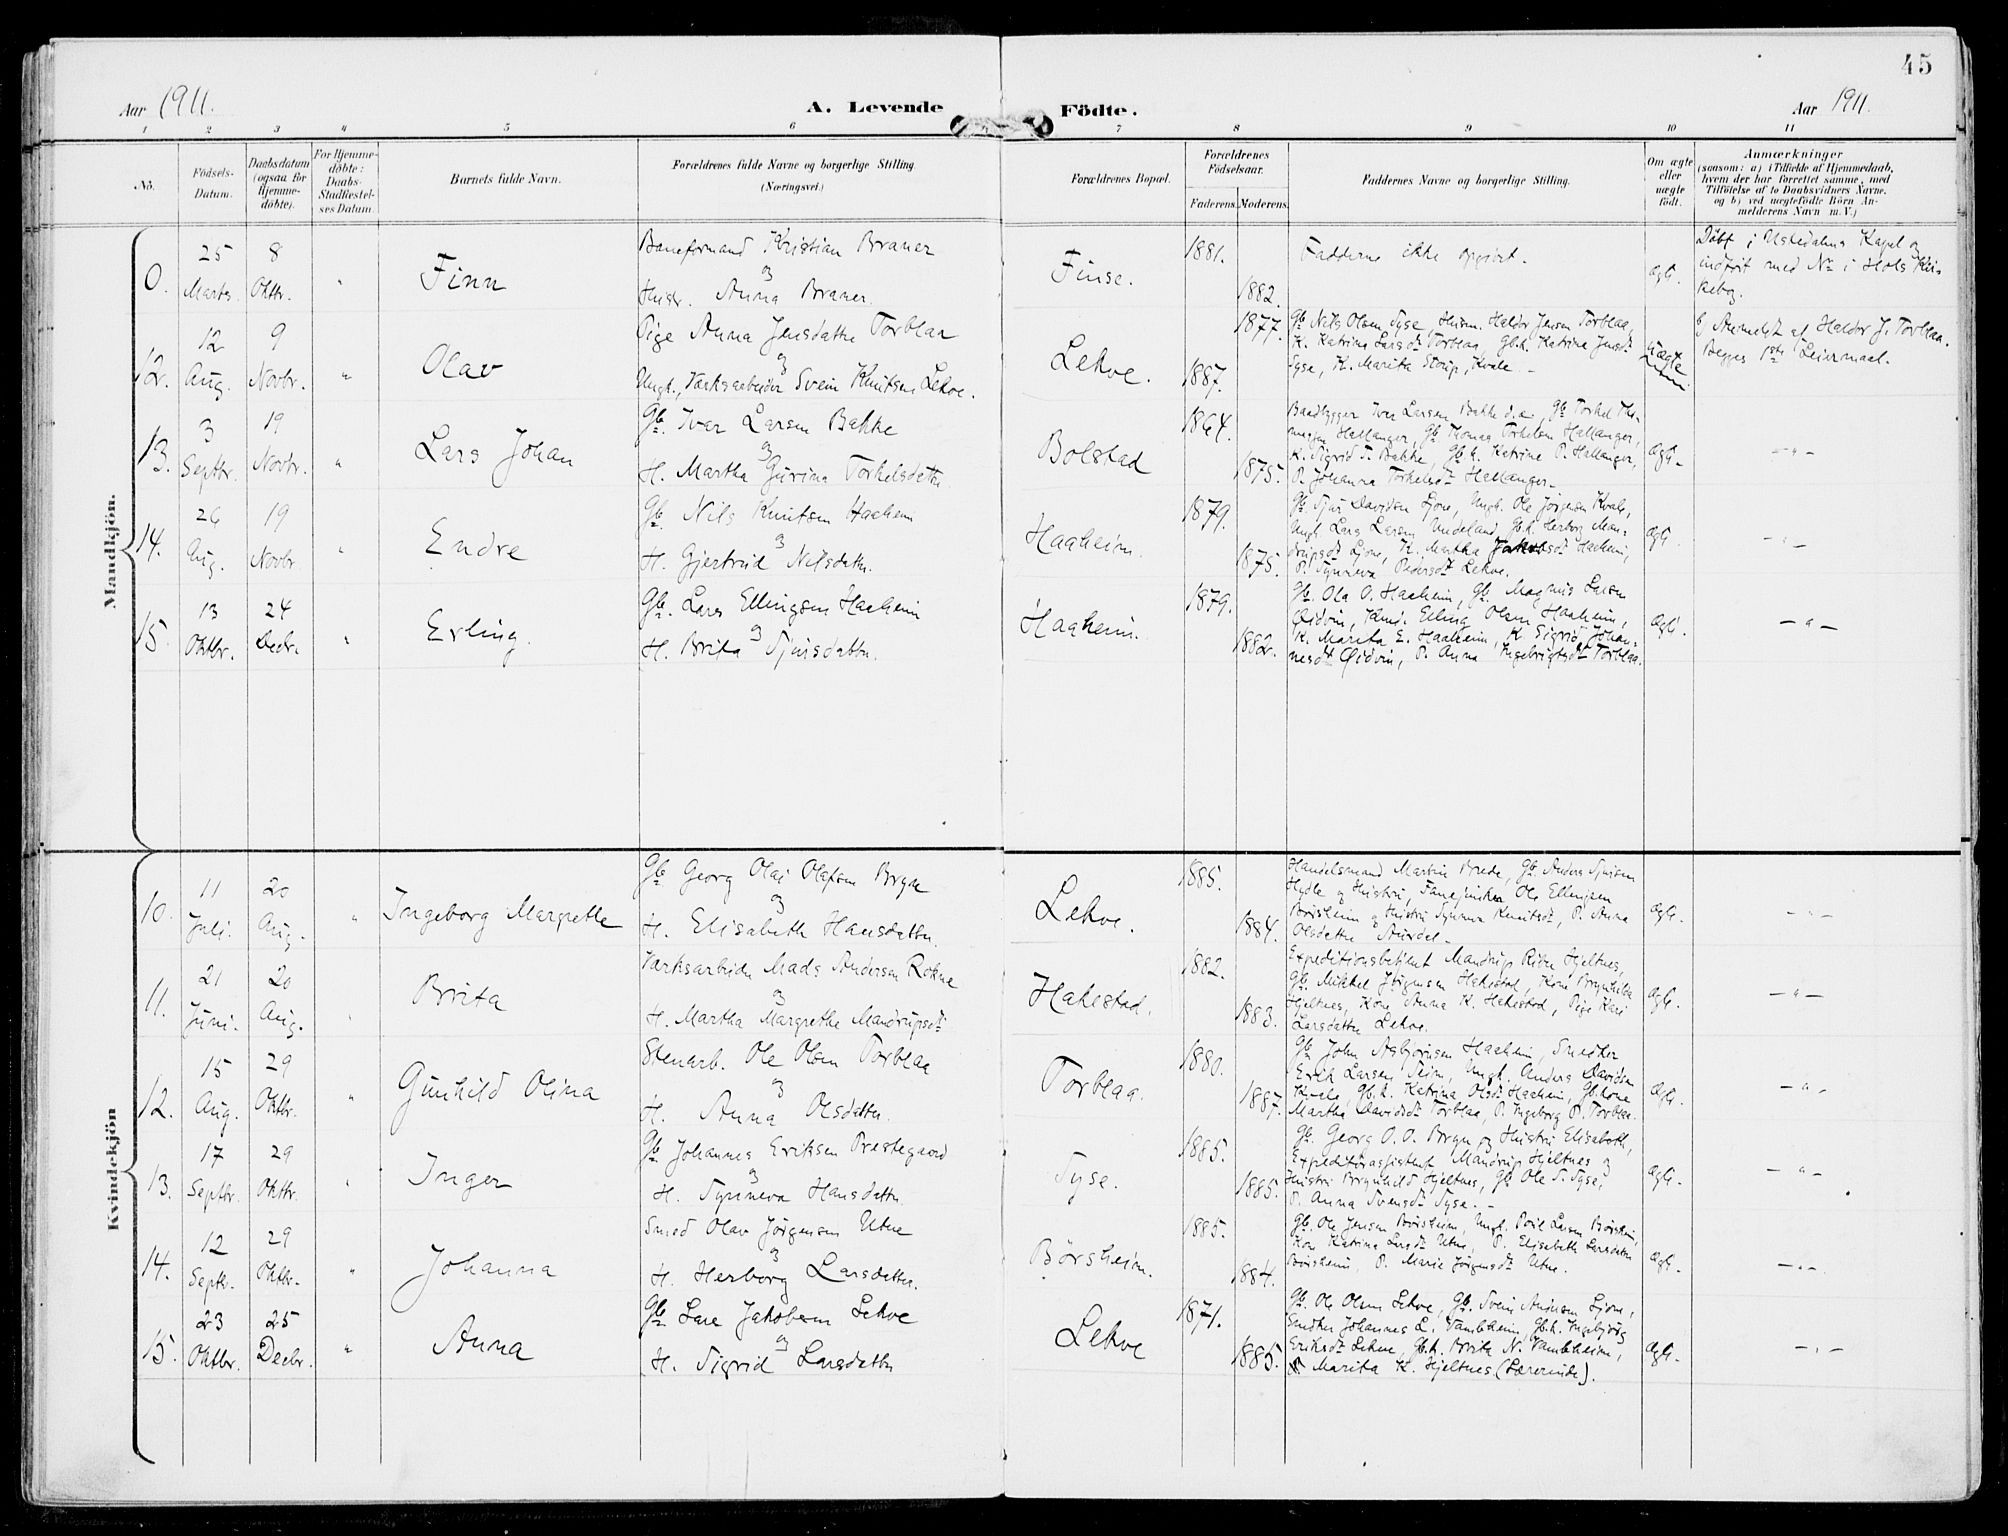 45
Aar 1911.
A. Levende Födte.
Aar 1911.
1 2 3 4 5 6 7 8 9 10 11
No.
Födsels-Datum.
Daabsdatum (ogsaa for Hjemme-døbte).
For Hjemme-døbte: Daabs-Stadfæstel-ses Datum.
Barnets fulde Navn.
Forældrenes fulde Navne og borgerlige Stilling. (Næringsvei.)
Forældrenes Bopæl.
Forældrenes Födselsaar.
Faderens. Moderens.
Faddernes Navne og borgerlige Stilling.
Om ægte eller uægte födt.
Anmærkninger
(saasom: a) i Tilfælde af Hjemmedaab, hvem der har forrettet samme, med Tilföielse af to Daabsvidners Navne, og b) ved uægtefödte Börn An-melderens Navn m. V.)
Mandkjön.
0. 25 Marts. 8 Oktbr. " Finn
Baneformand Kristian Braner
og
Hustr. Anna Braner.
Finse. 1881. 1882.
Fadderne ikke opgivet.
ægte.
Döbt i Ustedalens Kapel og
indført med No i Hols Kir-
kebog.
12. 12 Aug. 9 Novbr. " Olav
Pige Anna Jensdatter Torblaa
og
Ungk., Værksarbeider Svein Knutsen Lekve.
Lekve. 1877. 1887.
Gb. Nils Olsen Syse, Husm. Haldor Jensen Torblaa,
K. Katrina Larsdt Torblaa, Gb.k. Katrina Jensdt
Syse, K. Marita Storip, Kvale.
uægte
b) Anmeldt af Haldor J. Torblaa.
Begges 1ste Leiermaal.
13. 3 Septbr. 19 Novbr. " Lars Johan
Gb. Ivar Larsen Bakke
og
H. Martha Gurina Torkelsdatter
Bolstad 1864. 1875.
Baadbygger Iver Larsen Bakke d.æ., Gb. Torkel Tho-
massen Hallanger, Gb. Thomas Torkelsen Hallanger,
K. Sigrid T. Bakke, Gb.k. Katrine P. Hallanger,
P. Johanna Torkelsdt Hallanger.
ægte
— " —
14. 26 Aug. 19 Novbr. " Endre
Gb. Nils Knutsen Haaheim
og
H. Gjertrud Nilsdatter.
Haaheim. 1879. 1875.
Gb. Sjur Davidsen Ljone, Ungk. Ole Jörgensen Kvale,
Ungk. Lars Larsen Undeland, Gb.k. Herborg Man-
drupsdt Ljone, K. Martha Jakobsdt Haaheim,
P. Synneva Pedersdt Lekve.
ægte
— " —
15. 13 Oktbr. 24 Decbr. " Erling.
Gb. Lars Ellingsen Haaheim
og
H. Brita Sjursdatter.
Haaheim. 1879. 1882.
Gb. Ola O. Haaheim, Gb. Magnus Larsen
Øidvin, Kand. Elling Olsen Haaheim,
K. Marita E. Haaheim, K. Sigrid Johan-
nesdt Øidvin, P. Anna Ingebrigtsdt Torblaa.
ægte.
— " —
Kvindekjön
10. 11 Juli. 20 Aug. " Ingeborg Margrethe
Gb. Georg Olai Olafsen Bryn
og
H. Elisabeth Hansdatter.
Lekve. 1885. 1884.
Handelsmand Martin Brede, Gb. Anders Sjursen
Hylle og Hustru, Fanejunker Ole Ellingsen
Børsheim og Hustru Synneva Knutsdt, P. Anna
Olsdatter Aurdal.
ægte.
— " —
11. 21 Juni. 20 Aug. " Brita
Værksarbeider Mads Andersen Rokne
og
H. Martha Margrethe Mandrupsdt
Hakestad. 1882. 1883.
Expeditionsbetjent Mandrup Hjeltnes,
Gb. Mikkel Jörgensen Hakestad, Kone Brynhilda
Hjeltnes, Kone Anna K. Hakestad, Pige Kari
Larsdatter Lekve.
ægte.
— " —
12. 15 Aug. 29 Oktbr. " Gunhild Olina
Stenarb. Ole Olsen Torblaa
og
H. Anna Olsdatter.
Torblaa. 1880. 1887.
Gb. John Asbjørnsen Haaheim, Snedker
Erik Larsen Seim, Ungk. Anders Davidsen
Kvale, Gb.k. Katrina Olsdt Haaheim, Gb.kone
Martha Davidsdt Torblaa, P. Ingeborg P. Torblaa.
ægte.
— " —
13. 17 Septbr. 29 Oktbr. " Inger
Gb. Johannes Eriksen Prestegaard
og
H. Synneva Hansdatter.
Syse. 1885. 1885.
Gb. Georg O. O. Bryn og Hustru Elisabeth,
Expeditørassistent Mandrup Hjeltnes og
Hustru Brynhild Hjeltnes, Gb. Ole S. Syse,
P. Anna Svensdt Syse.
ægte.
— " —
14. 12 Septbr. 29 Oktbr. " Johanna
Smed Olav Jörgensen Utne
og
H. Herborg Larsdatter.
Börsheim. 1885. 1884.
Gb. Ole Jensen Børsheim, Ungk. Larsen Børsheim,
Kone Katrina Larsdt Utne, P. Elisabeth Larsdatter
Børsheim, P. Marie Jørgensdt Utne.
ægte.
— " —
15. 23 Oktbr. 25 Decbr. " Anna
Gb. Lars Jakobsen Lekve
og
H. Sigrid Larsdatter
Lekve 1871. 1885.
Gb. Ole Olsen Lekve, Gb. Svein Ljone,
Snedker Johannes L. Vambheim, Gb.k. Ingebjørg
Eriksdt Lekve, Gb.k. Brita N. Vambheim,
Marita K. Hjeltnes (Lærerinde).
ægte.
— " —